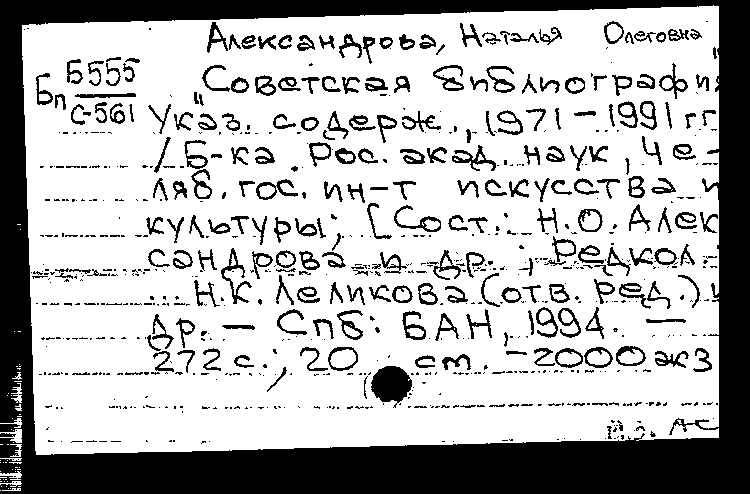 Александрова, Наталья Олеговна
Бп Б555
С-561
"Советская библиография"
Указ. содерж., 1971-1991 гг
/ Б-ка Рос. акад. наук, Че-
ляб. гос. ин-т искусства и
культуры; [Сост.: Н.О. Алек
сандрова и др.; Редкол.:
... Н.К. Леликова (отв. ред.) и
др. — Спб: БАН, 1994. —
272 с.; 20 ст. - 2000 экз